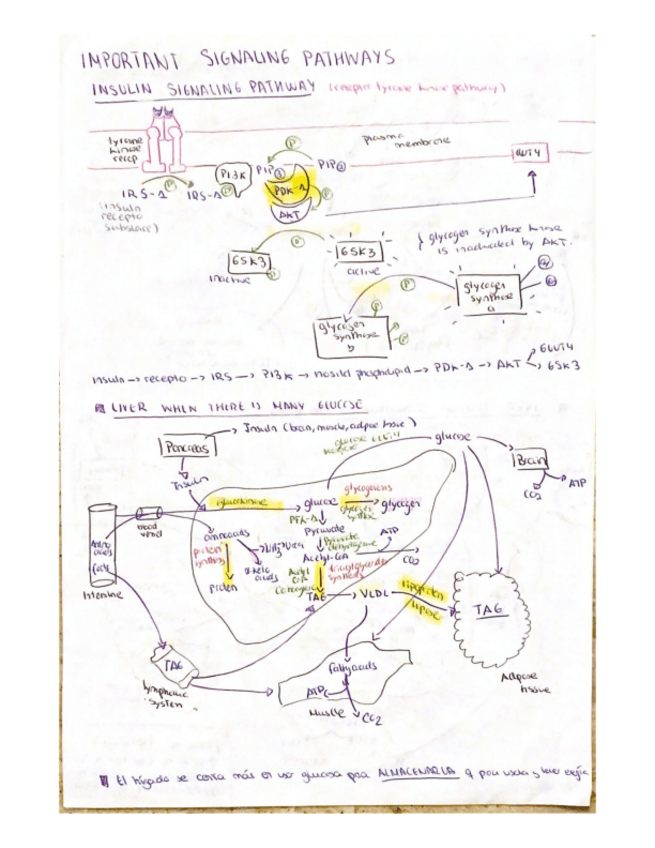 IMPORTANT SIGNALING PATHWAYS
INSULIN SIGNALING PATHWAY (receptor tyrosine kinase pathway)
tyrosine
kinase
recep
plasma
membrane
GLUT4
PI3K
PIP③
PIP②
P
PDK-1
AKT
IRS-1
P
IRS-1
P
(insulin
recepto
substace)
GSK3
P
inactive
P
GSK3
active
} glycogen synthase kinase
is inactivated by AKT.
glycogen
synthase
a
P
glycogen
synthase
b
P
Insulin → recepto → IRS → PI3K → inositol phospholipid → PDK-1 → AKT
GLUT4
GSK3
LIVER WHEN THERE IS MANY GLUCOSE
Pancreas
→ Insulin (brain, muscle, adipose tissue)
Insulin
glucose
Brain
ATP
CO2
glucokinase
glucose
glycogenesis
glycogen
synthase
glycogen
PFK-1
Pyruvate
Pyruvate
dehydrogenase
ATP
Acetyl-CoA
CO2
Acetyl
CoA
Carboxylase
triacylglyceride
synthesis
TAG → VLDL
lipoprotein
lipase
TAG
Adipose
tissue
blood
vessel
Amino
acids
Intestine
aminoacids
protein
synthesis
protein
α-keto
acids
TAG
lymphatic
system
Fatty acids
ATP
Muscle
CO2
El hígado se centra más en usar glucosa para ALMACENARLA q para usarla y tener energía